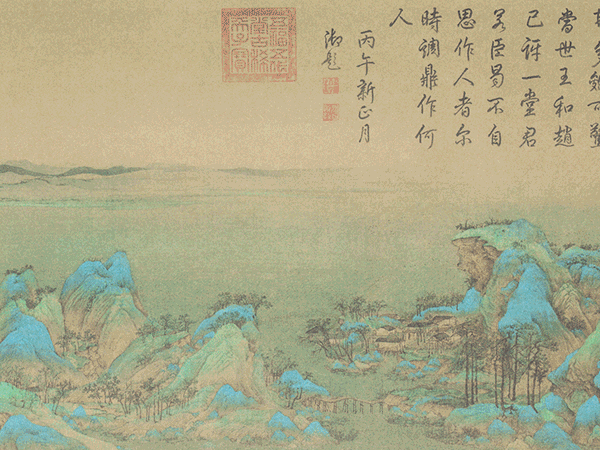 多皴可驚
當世王和趙
已訝一堂君
若臣曷不自
思作人者爾
時調鼎作何
人
丙午新正月
御題
五福五代
堂古稀
天子寶